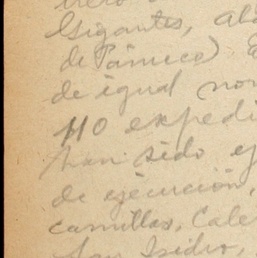 Gigantes, Ala
de Pánuco)
de igual nom
110 expedi
han sido ej
de ejecución,
camillas, Cale
San Isidro,